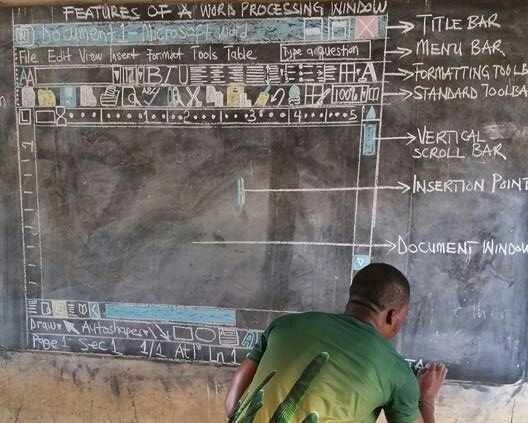 FEATURES OF A WORD PROCESSING WINDOW
Document 1 - Microsoft Word
TITLE BAR
File Edit View Insert Format Tools Table
Type a question
MENU BAR
B I U
A
FORMATTING TOOLB
ABC
100%
STANDARD TOOLBA
1 2 3 4 5
VERTICAL
SCROLL BAR
INSERTION POINT
DOCUMENT WINDOW
Draw Autoshapes
Page 1 Sec 1 1/1 At 1" Ln 1
STA